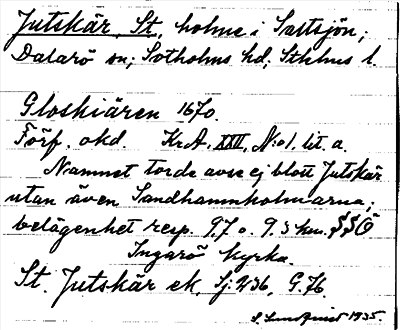 Jutskär, St, holme i Saltsjön;
Dalarö sn; Sotholms hd; Sthlms l.
Gloskiären 1670.
Förf. okd. KrA. XXII, N:o1. lit. a.
Namnet torde avse ej blott Jutskär
utan även Sandhamnholmarna;
belägenhet resp. 9.7 o. 9.3 km. SSÖ
Ingarö kyrka.
St. Jutskär ek. Sj. 236, G.76.
S. Sundqvist 1935.